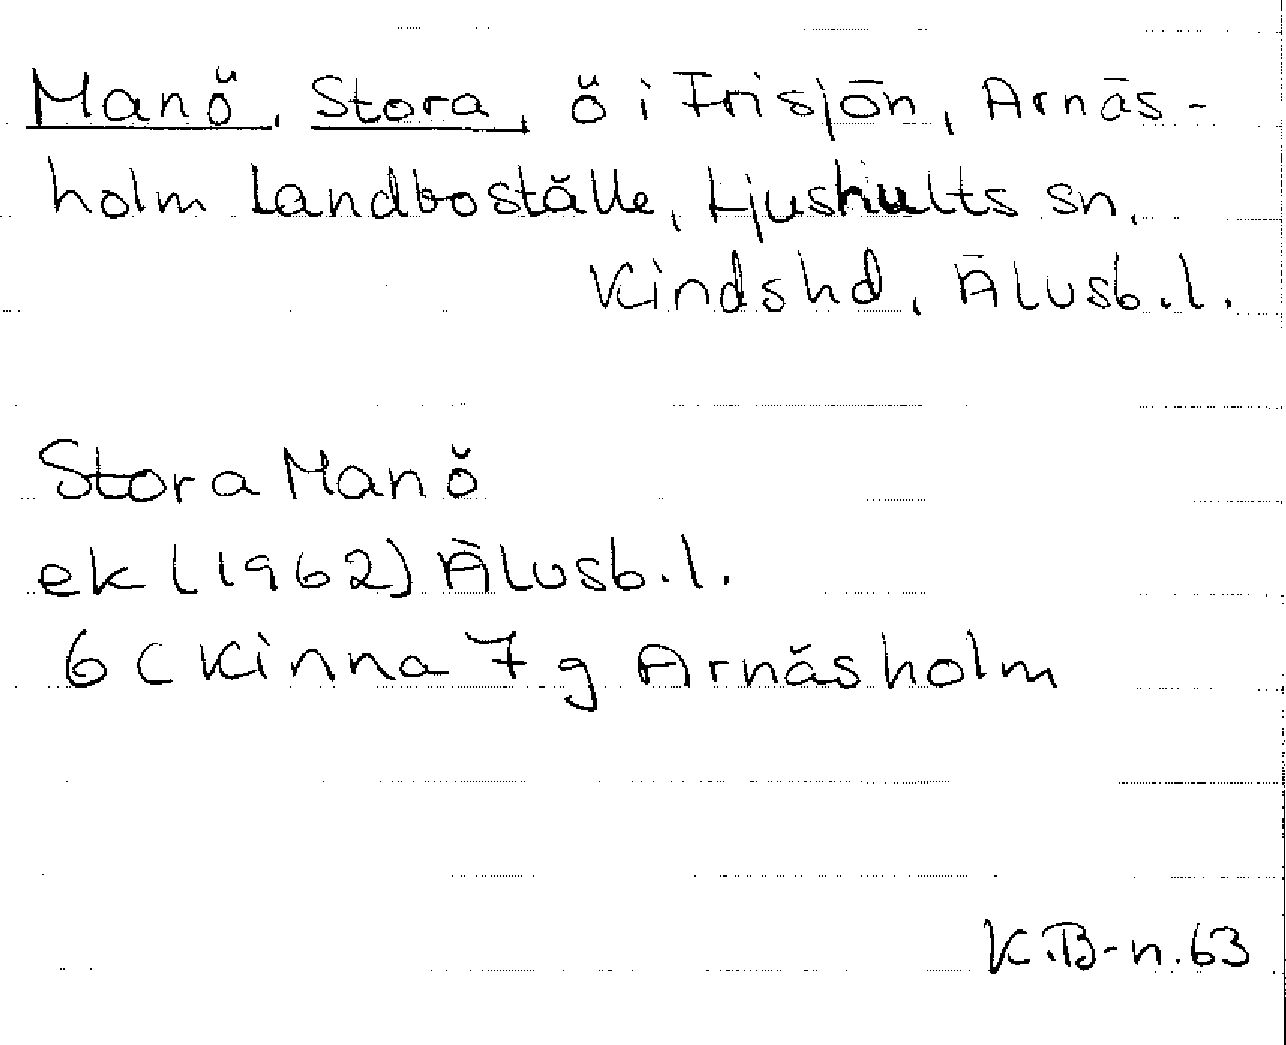 Manö, Stora, ö i Frisjön, Arnäs-
holm Landboställe, Ljushults sn.
Kindshd, Älvsb.l.
Stora Manö
ek (1962) Älvsb.l.
6 C Kinna 7 g Arnäsholm
K.B-n.63